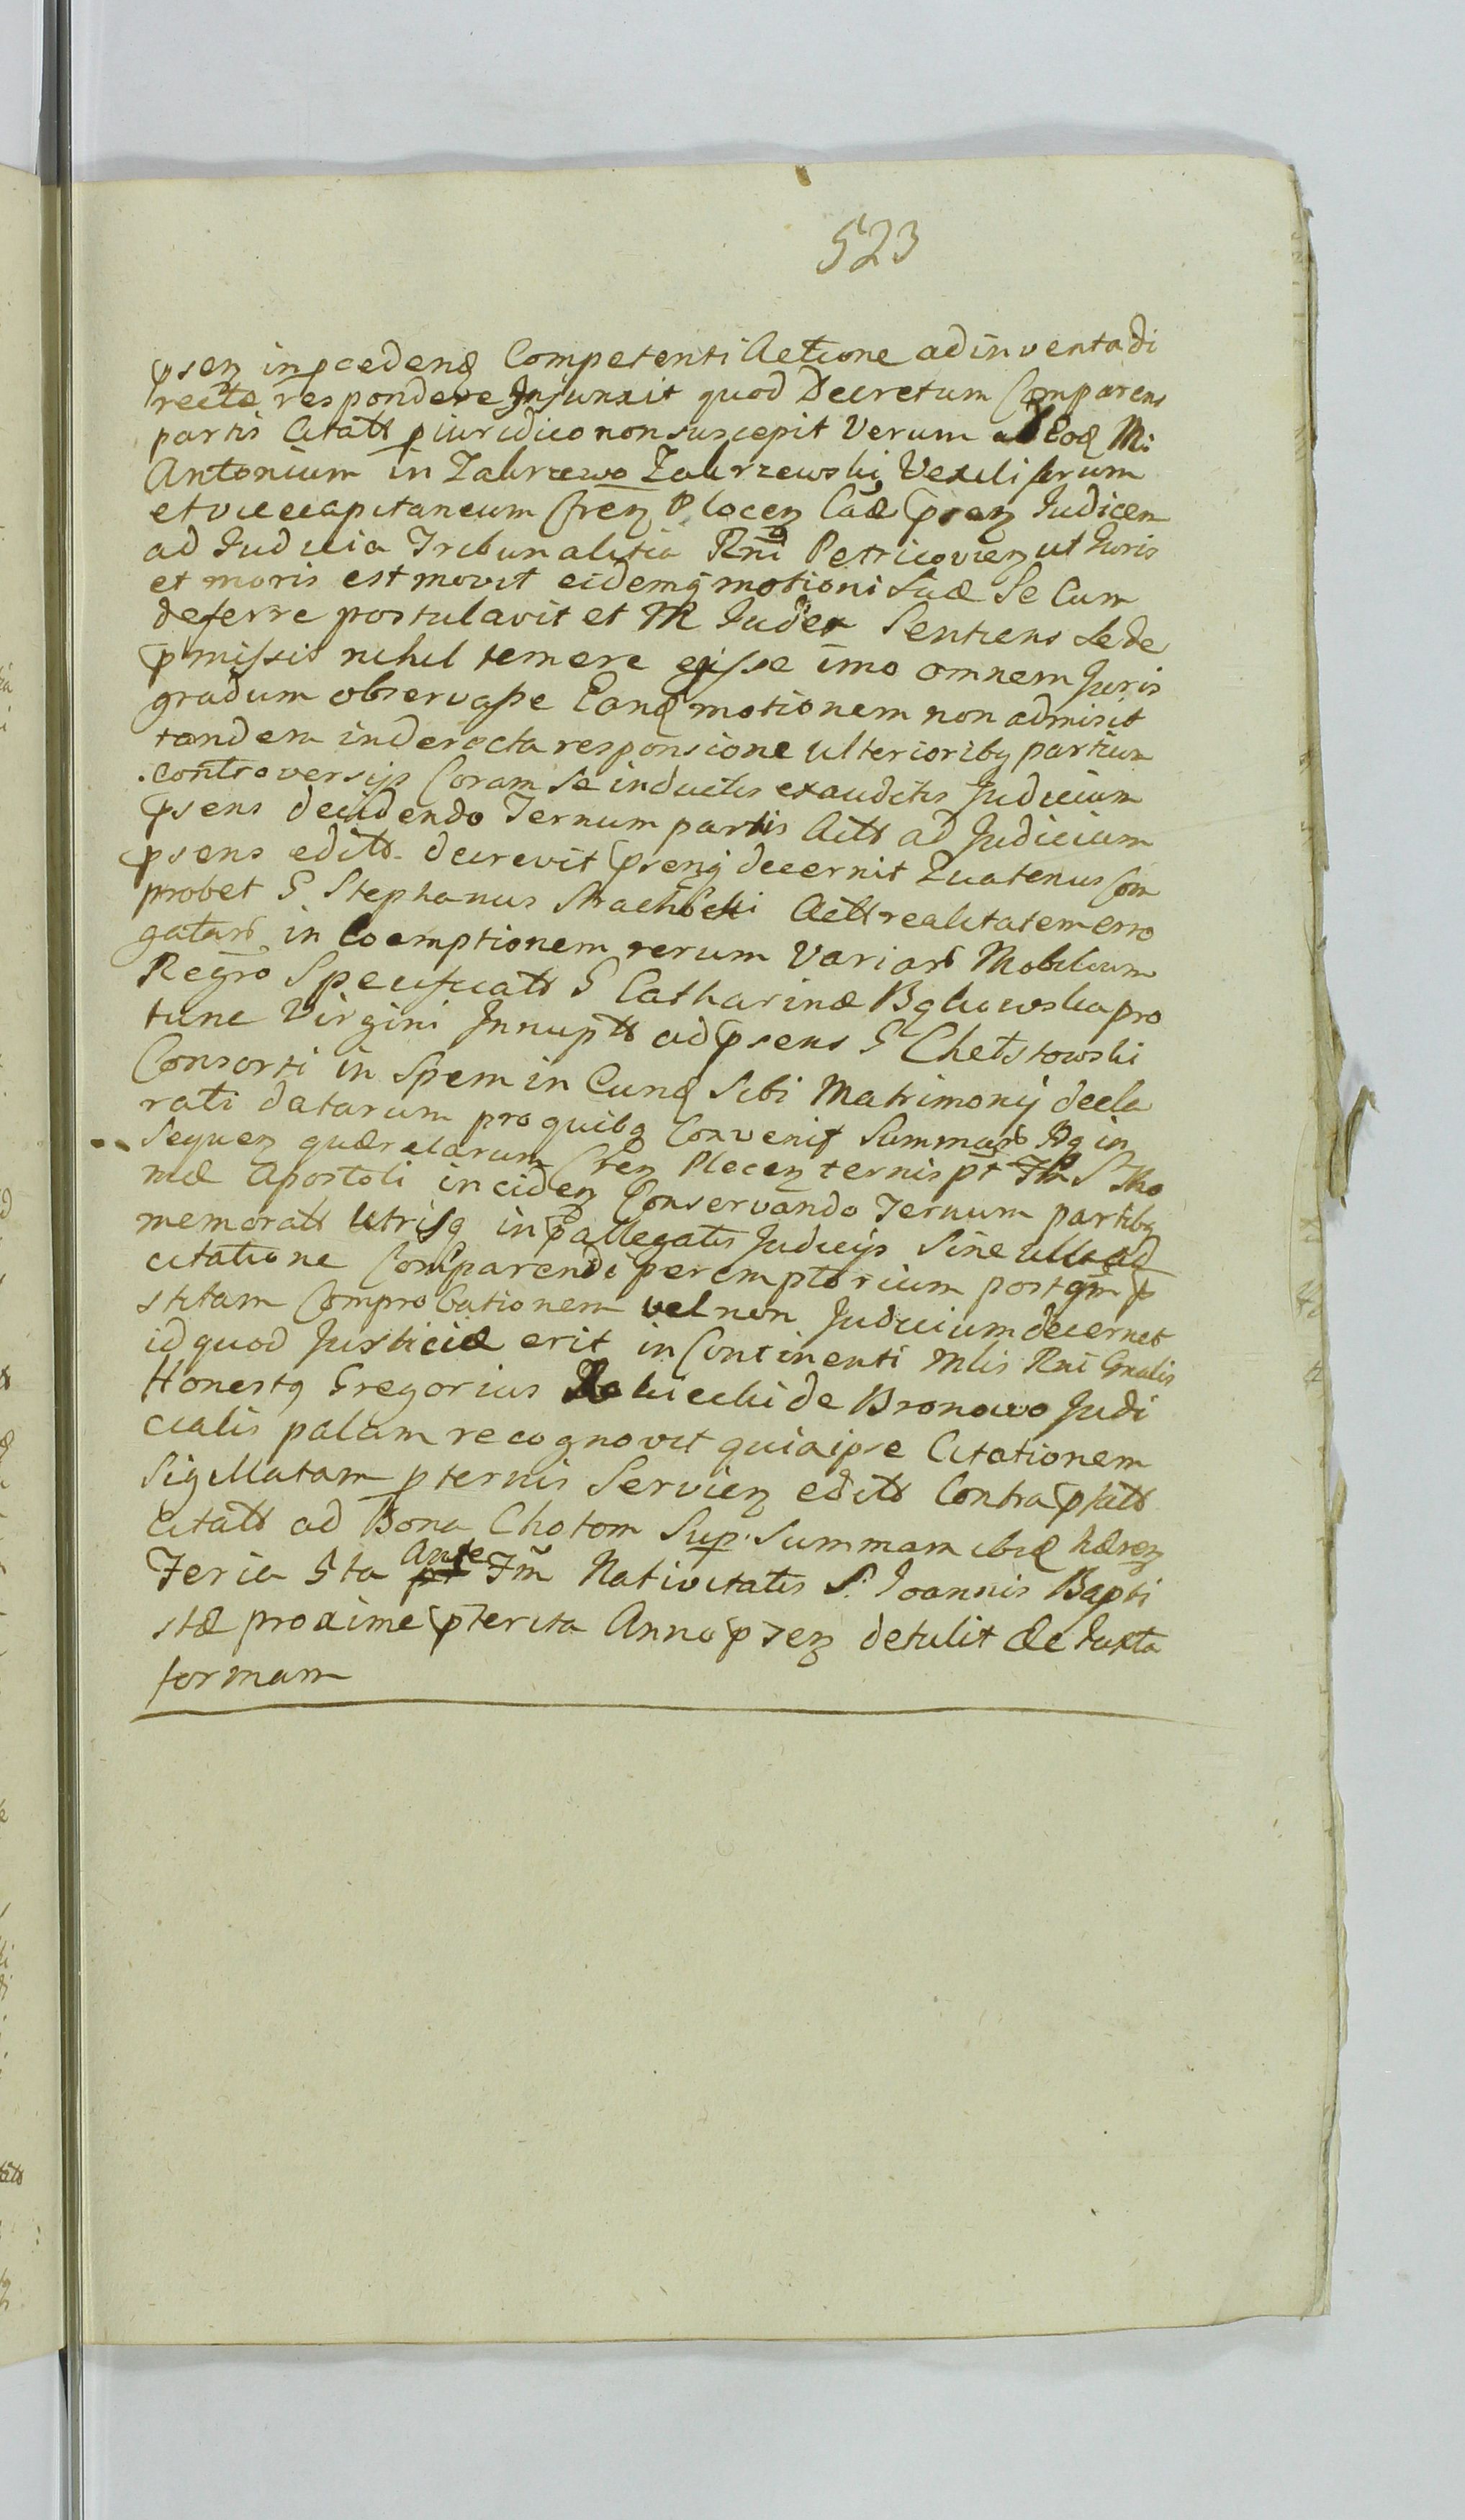 523
psen in pcedenq Competenti Actione ad inventa di
recte respondere Injunxit quod Decretum Comparens
partis Citatt p iuridico non suscepit Verum ab Eoq M:
Antonium in Zakrzewo Zakrzewski Vexiliferum
et vicecapitaneum Cren Plocen Caq psen Iudicem
ad Iudicia Tribunalitia Rni Petricovien ut Iuris
et moris est movit eidemq motioni Suæ Se Cum
deferre postulavit et M Iudex Sentiens se de
pmissis nihil temere egisse imo omnem Iuris
gradum observasse Eanq motionem non admisit
tandem in derecta responsione ulterioribq partium
controversijs Coram se inductis exauditis Iudicium
psens decidendo Ternum partis Actt ad Iudicium
psens editt. decrevit psenq decernit Quatenus Com
probet G Stephanus Actt realitatem erro
gatars in Coemptionem rerum Variars Mobilium
Regro Specificatt G Catharinæ pro
tunc Virgini Innuptt ad psens Gl Chelstowski
Consorti in Spem in Cunq Sibi Matrimonij decla
rati datarum pro quibq Convenit Summars Hq in
Sequen quærelarum Cren Plocen ternis pt Fm S Tho
mæ Apostoli inciden Conservando Ternum partibq
memoratt Utrisq in pallegatis Iudicijs Sine ulla ad
citatione Comparendi peremptorium post qm p
stitam Comprobationem vel non Iudicium decernet
id quod Iusticiæ erit in Continenti Mlis Rni Gnalis
Honestq Gregorius de Bronowo Judi
cialis palam recognovit quia ipse Citationem
Sigillatam p ternis Servien editt Contra pfatt
Citatt ad Bona Chotom Sup. Summam ibiq hæren
Feria 5ta Ante Fm Nativitatis S. Joannis Bapti
stæ proxime pterita Anno psen detulit &c Iuxta
formam